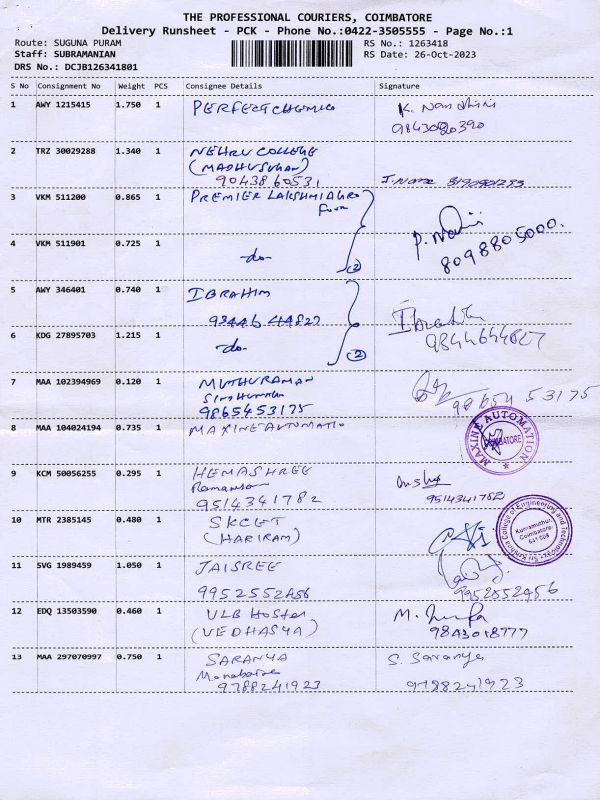 THE PROFESSIONAL COURIERS, COIMBATORE
Delivery Runsheet - PCK - Phone No.:0422-3505555 - Page No.:1
Route: SUGUNA PURAM RS No.: 1263418
Staff: SUBRAMANIAN RS Date: 26-Oct-2023
DRS No.: DCJB126341801
S No Consignment No Weight PCS Consignee Details Signature
1 AWY 1215415 1.750 1 PERFECT CHEMICO K. Nandhini
9843080390
2 TRZ 30029288 1.340 1 NEHRU COLLEGE
(MADHUSUHAN)
9043860531
3 VKM 511200 0.865 1 PREMIER LAKSHMI AGRO
4 VKM 511901 0.725 1 -do- (2) 8098805000.
5 AWY 346401 0.740 1 IBRAHIM
6 KDG 27895703 1.215 1 -do- (2)
7 MAA 102394969 0.120 1 MUTHURAMAN
9865453175
8 MAA 104024194 0.735 1 MAXINE AUTOMATIO MAXINE AUTOMATION COIMBATORE
9 KCM 50056255 0.295 1 HEMASHREE
9514341782
10 MTR 2385145 0.480 1 SKCET
(HARIRAM) Sri Krishna College of Engineering and Technology Kuniamuthur, Coimbatore-
11 SVG 1989459 1.050 1 JAISREE
9952552456 9952552456
12 EDQ 13503590 0.460 1 ULB Hostel M.
(VEDHASYA) 9843018777
13 MAA 297070997 0.750 1 SARANYA S. Saranya
9788241923 9788241923